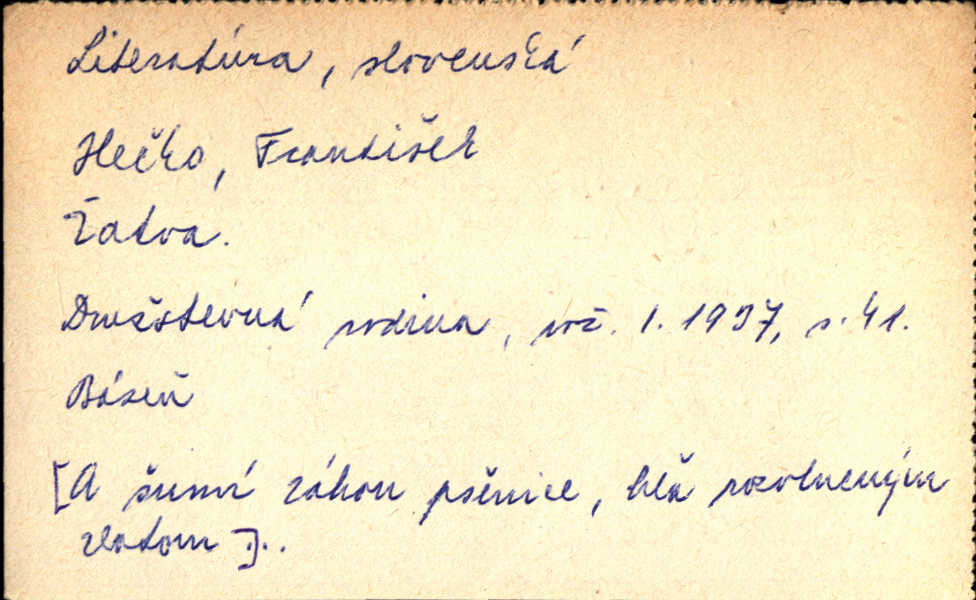 Literatúra, slovenská
Hečko, František
Žatva.
Družstevná rodina, roč. 1. 1937, s. 41.
Báseň
[A šumí záhon pšenice, hľa rozvlneným
zlatom]..